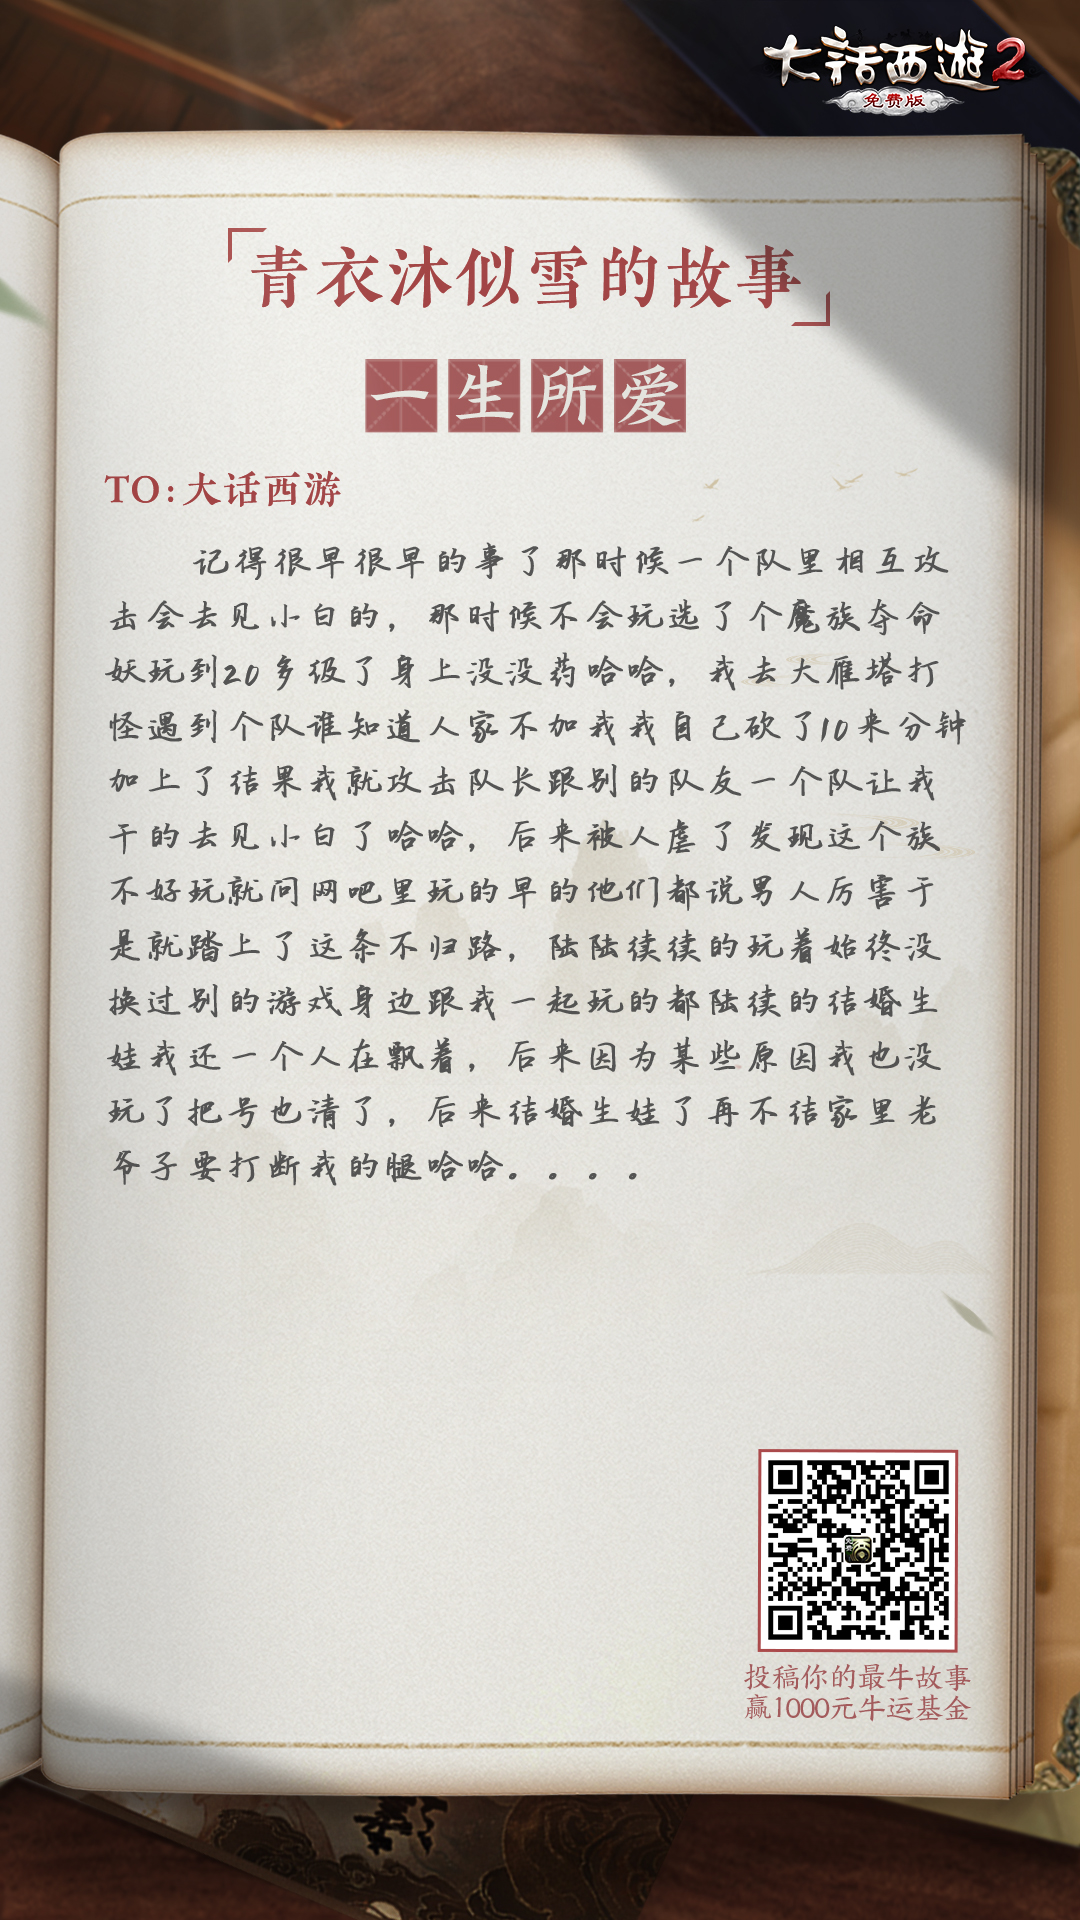 大话西遊2
免费版
青衣沐似雪的故事
一生所爱
TO:大话西游
记得很早很早的事了那时候一个队里相互攻
击会去见小白的，那时候不会玩选了个魔族夺命
妖玩到20多级了身上没没药哈哈，我去大雁塔打
怪遇到个队谁知道人家不加我我自己砍了10来分钟
加上了结果我就攻击队长跟别的队友一个队让我
干的去见小白了哈哈，后来被人虐了发现这个族
不好玩就问网吧里玩的早的他们都说男人厉害于
是就踏上了这条不归路，陆陆续续的玩着始终没
换过别的游戏身边跟我一起玩的都陆续的结婚生
娃我还一个人在飘着，后来因为某些原因我也没
玩了把号也清了，后来结婚生娃了再不结家里老
爷子要打断我的腿哈哈。。。。
投稿你的最牛故事
赢1000元牛运基金